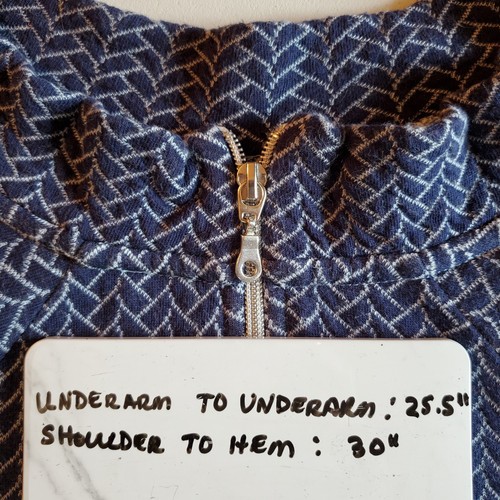 UNDERARM TO UNDERARM: 25.5"
SHOULDER TO HEM: 30"